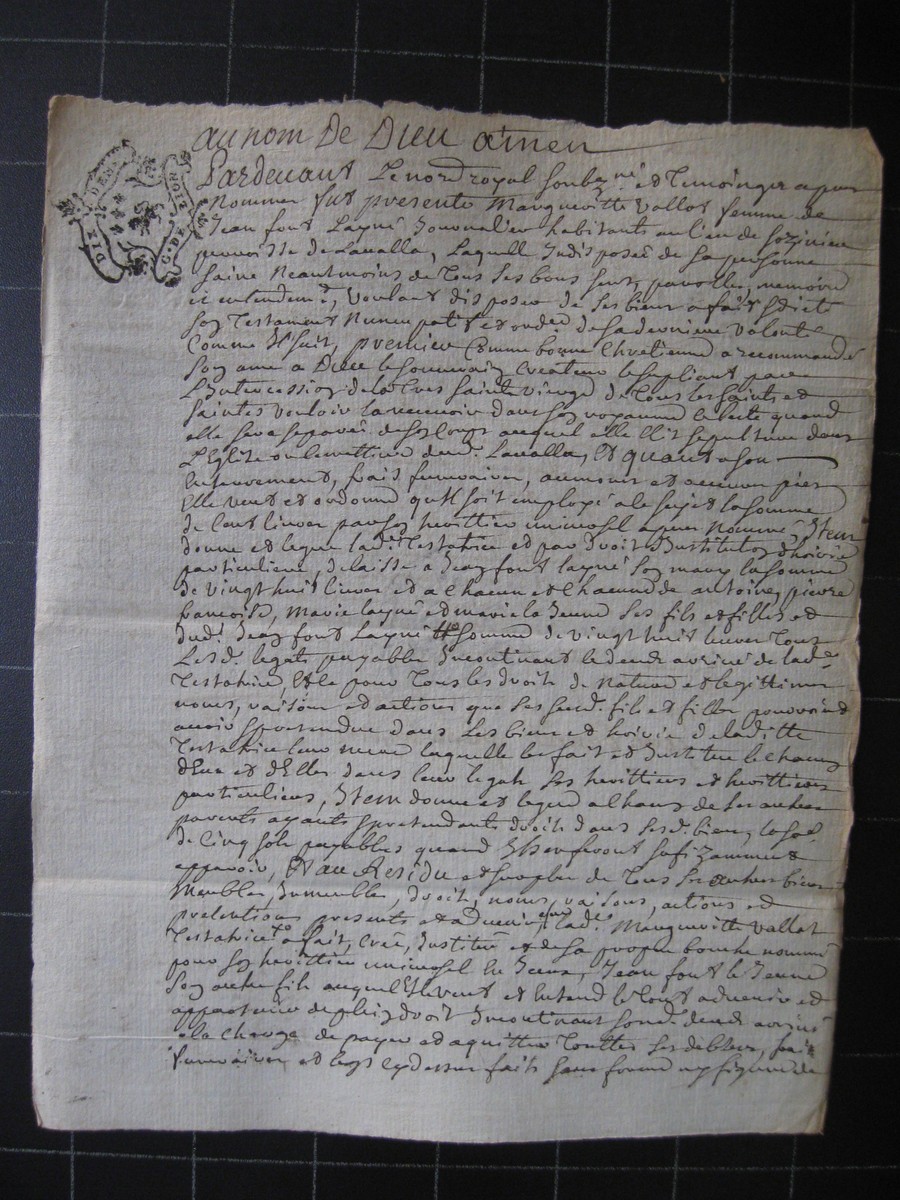 DIX DEN
G. DE
au nom De Dieu amen
Pardevant Le no.re royal soubz.né et temoings apres
Nommer fut presente Margueritte Vallot femme de
Jean font Layné Journalier habitants au lieu de
parroisse de Lavalla, Laquelle Indisposée de sa personne
saine Neautmoins de Tous ses bons sens, parolle, memoire
et entendem.t, Voulant disposer de ses biens a fait
son Testament Nuncupatif et ord.re de sa derniere volonté
Comme s'Ensuit, premier Comme bonne Chretienne a recommandé
son ame a Dieu le souverain Createur le supliant par
L'Intercession de la Tres sainte vierge de Tous les saints et
saintes vouloir la recevoir dans son royaume Celeste quand
elle sera separée de son Corps auquel elle Elit sepulture dans
L'Eglise ou Cemettiere dud. Lavalla, Et quant a son
Enterrement, frais funeraires, aumones et œuvres pies
Elle veut et ordonne qu'Il soit employé a le sujet la somme
de Cent livres par son herittier universel apres Nommé, Item
donne et legue lad. Testatrice et par droit d'Institution d'hoirie
particuliere, delaisse a Jean font layné son mary la somme
de vingt huit livres et a chacun et chacune de antoine, pierre
francoise, Marie layné et marie la Jeune ses fils et filles et
dud. Jean font Layné la somme de vingt huit livres Tous
Lesd. legats payables Incontinant le deceds arrivé de lad.
Testatrice, Et ce pour Tous les droits de Nature et legittimes
noms, raisons et actions que ses susd. fils et filles pourroient
avoir et pretendre dans Les biens et hoirie de laditte
Testatrice leur mere laquelle les fait et Institue le chacun
d'Eux et d'Elles dans leur legat ses herittiers et herittieres
particuliers, Item donne et legue a Chacun de ses autres
parents ayants et pretendants droits dans sesd. biens, la so.e
de Cinq sols payables quand Ils en feront sufizamment
apparoir, Et au Residu et surplus de Tous ses autres biens
Meubles, Immeubles, droits, noms, raisons, actions et
pretentions presents et advenir lad. Marguerite Vallot
Testatrice a fait, Créé, Institué et de sa propre bouche nommé
pour son herittier universel Jean font le Jeune
son autre fils auquel Elle veut et Entend le tout advenir et
appartenir de plein droit Incontinant sond. deceds arrivé
a la charge de payer et aquitter Touttes ses debtes, frais
funeraires et legs cy dessus faits sans forme ny figure de